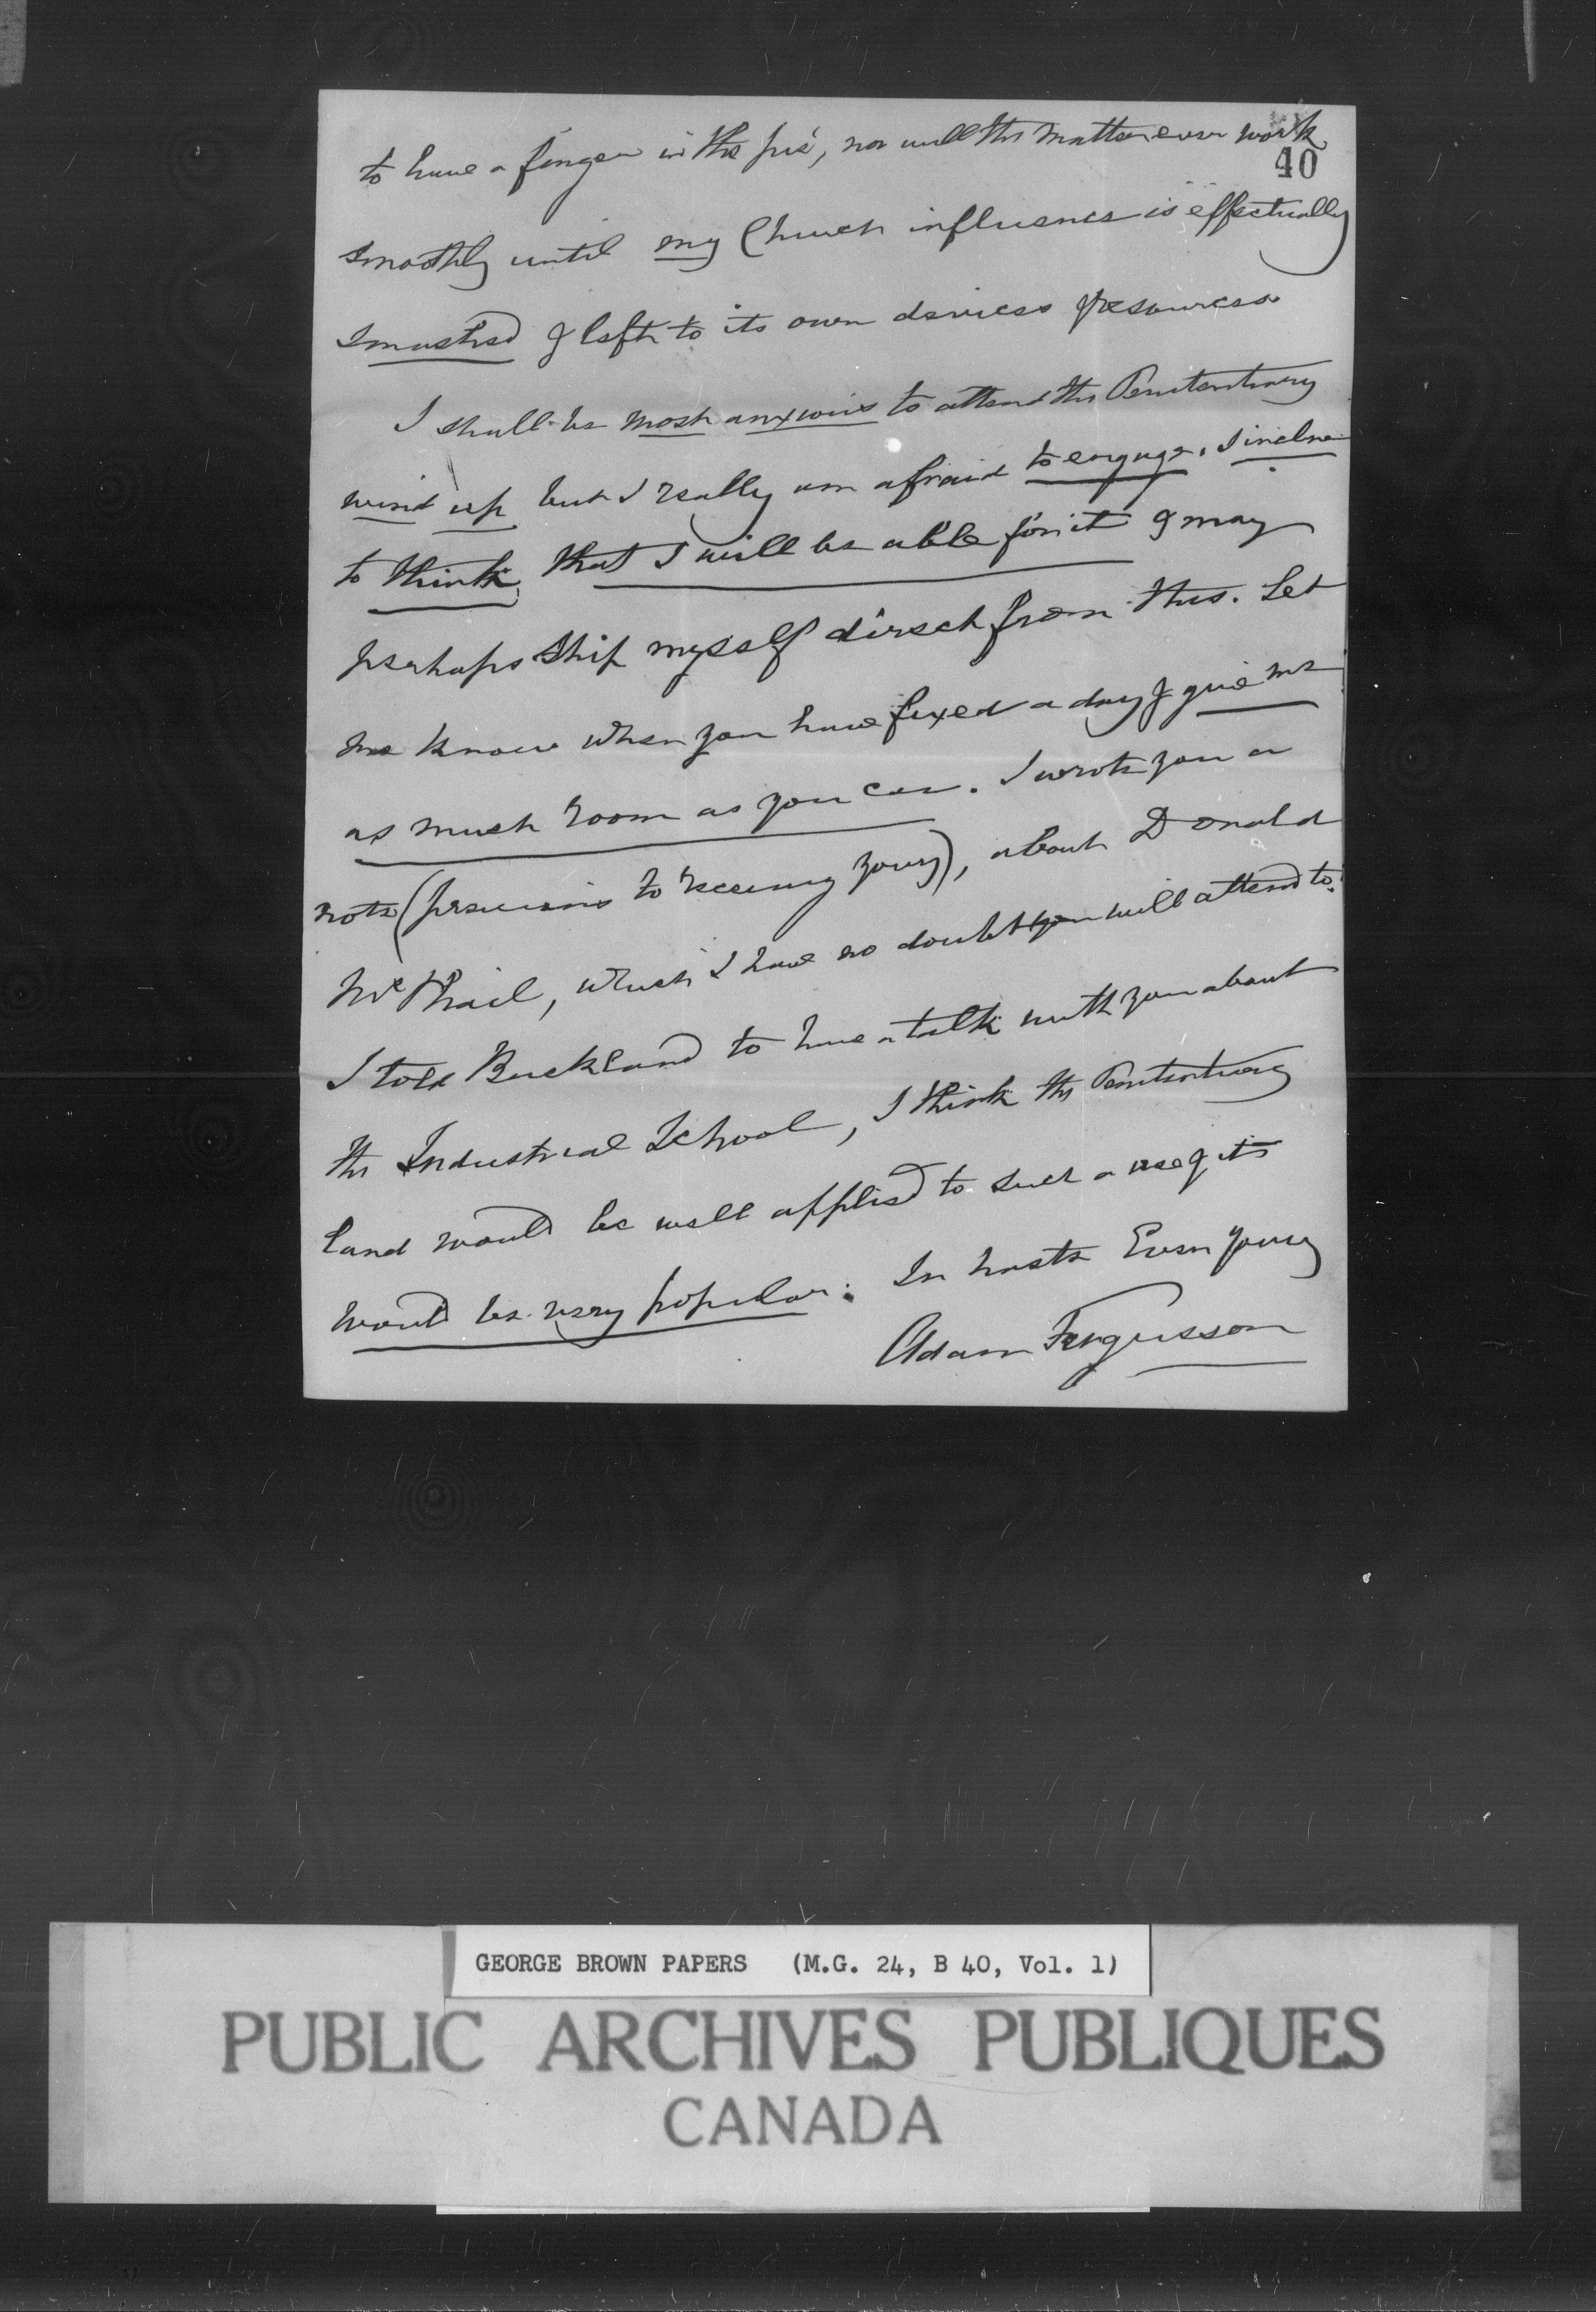 to have a finger in the pie, nor will the matter ever work
40
smoothly until my Church influence is effectually
smashed & left to its own devices & resources
I shall be most anxious to attend the Penitentiary
wind up but I really am afraid to engage. I incline
to think that I will be able for it & may
perhaps ship myself direct from this. Let
me know when you have fixed a day & give me
as much room as you can. I wrote you a
note (previous to receiving yours), about Donald
McPhail, which I have no doubt you will attend to.
I told Buckland to have a talk with you about
the Industrial School, I think the Penitentiary
land would be well applied to such a use & it
would be very popular. In haste Ever yours
Adam Fergusson
GEORGE BROWN PAPERS (M.G. 24, B 40, Vol. 1)
PUBLIC ARCHIVES PUBLIQUES
CANADA